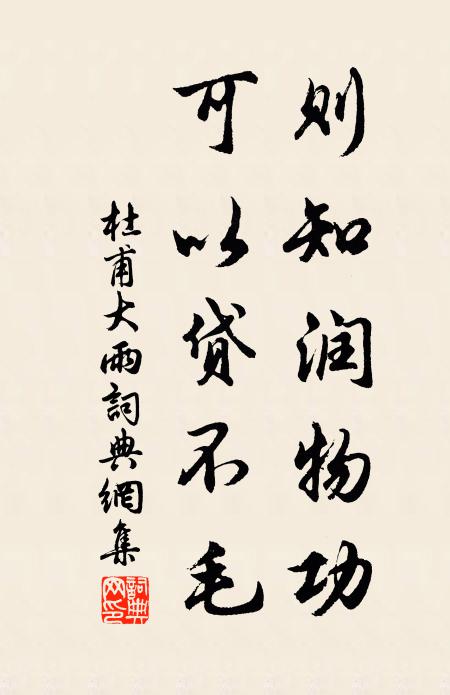 则知润物功
可以贷不毛
杜甫大雨詞典網集
詞典网印